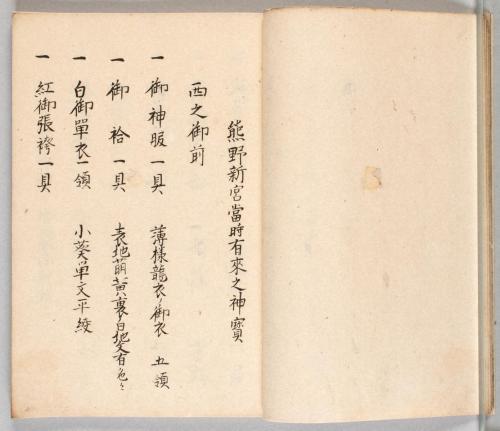 熊野新宮當時有來之神寳
西之御前
一 御神服一具 薄様龍衣御衣 五領
一 御袷一具 表地萌黄裏白地文有色々
一 白御單衣一領 小葵單文平綾
一 紅御張袴一具